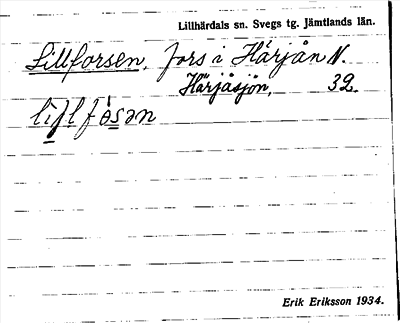 Lillhärdals sn. Svegs tg. Jämtlands län.
Lillforsen, fors i Härjån N.
Härjåsjön, 32.
Erik Eriksson 1934.